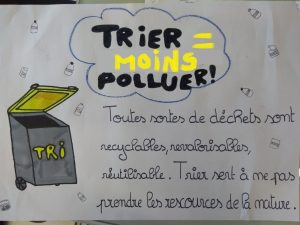 TRIER =
MOINS
POLLUER!
Toutes sortes de déchets sont
recyclables, revalorisables,
réutilisable. Trier sert à me pas
prendre les rescources de la nature.
TRI